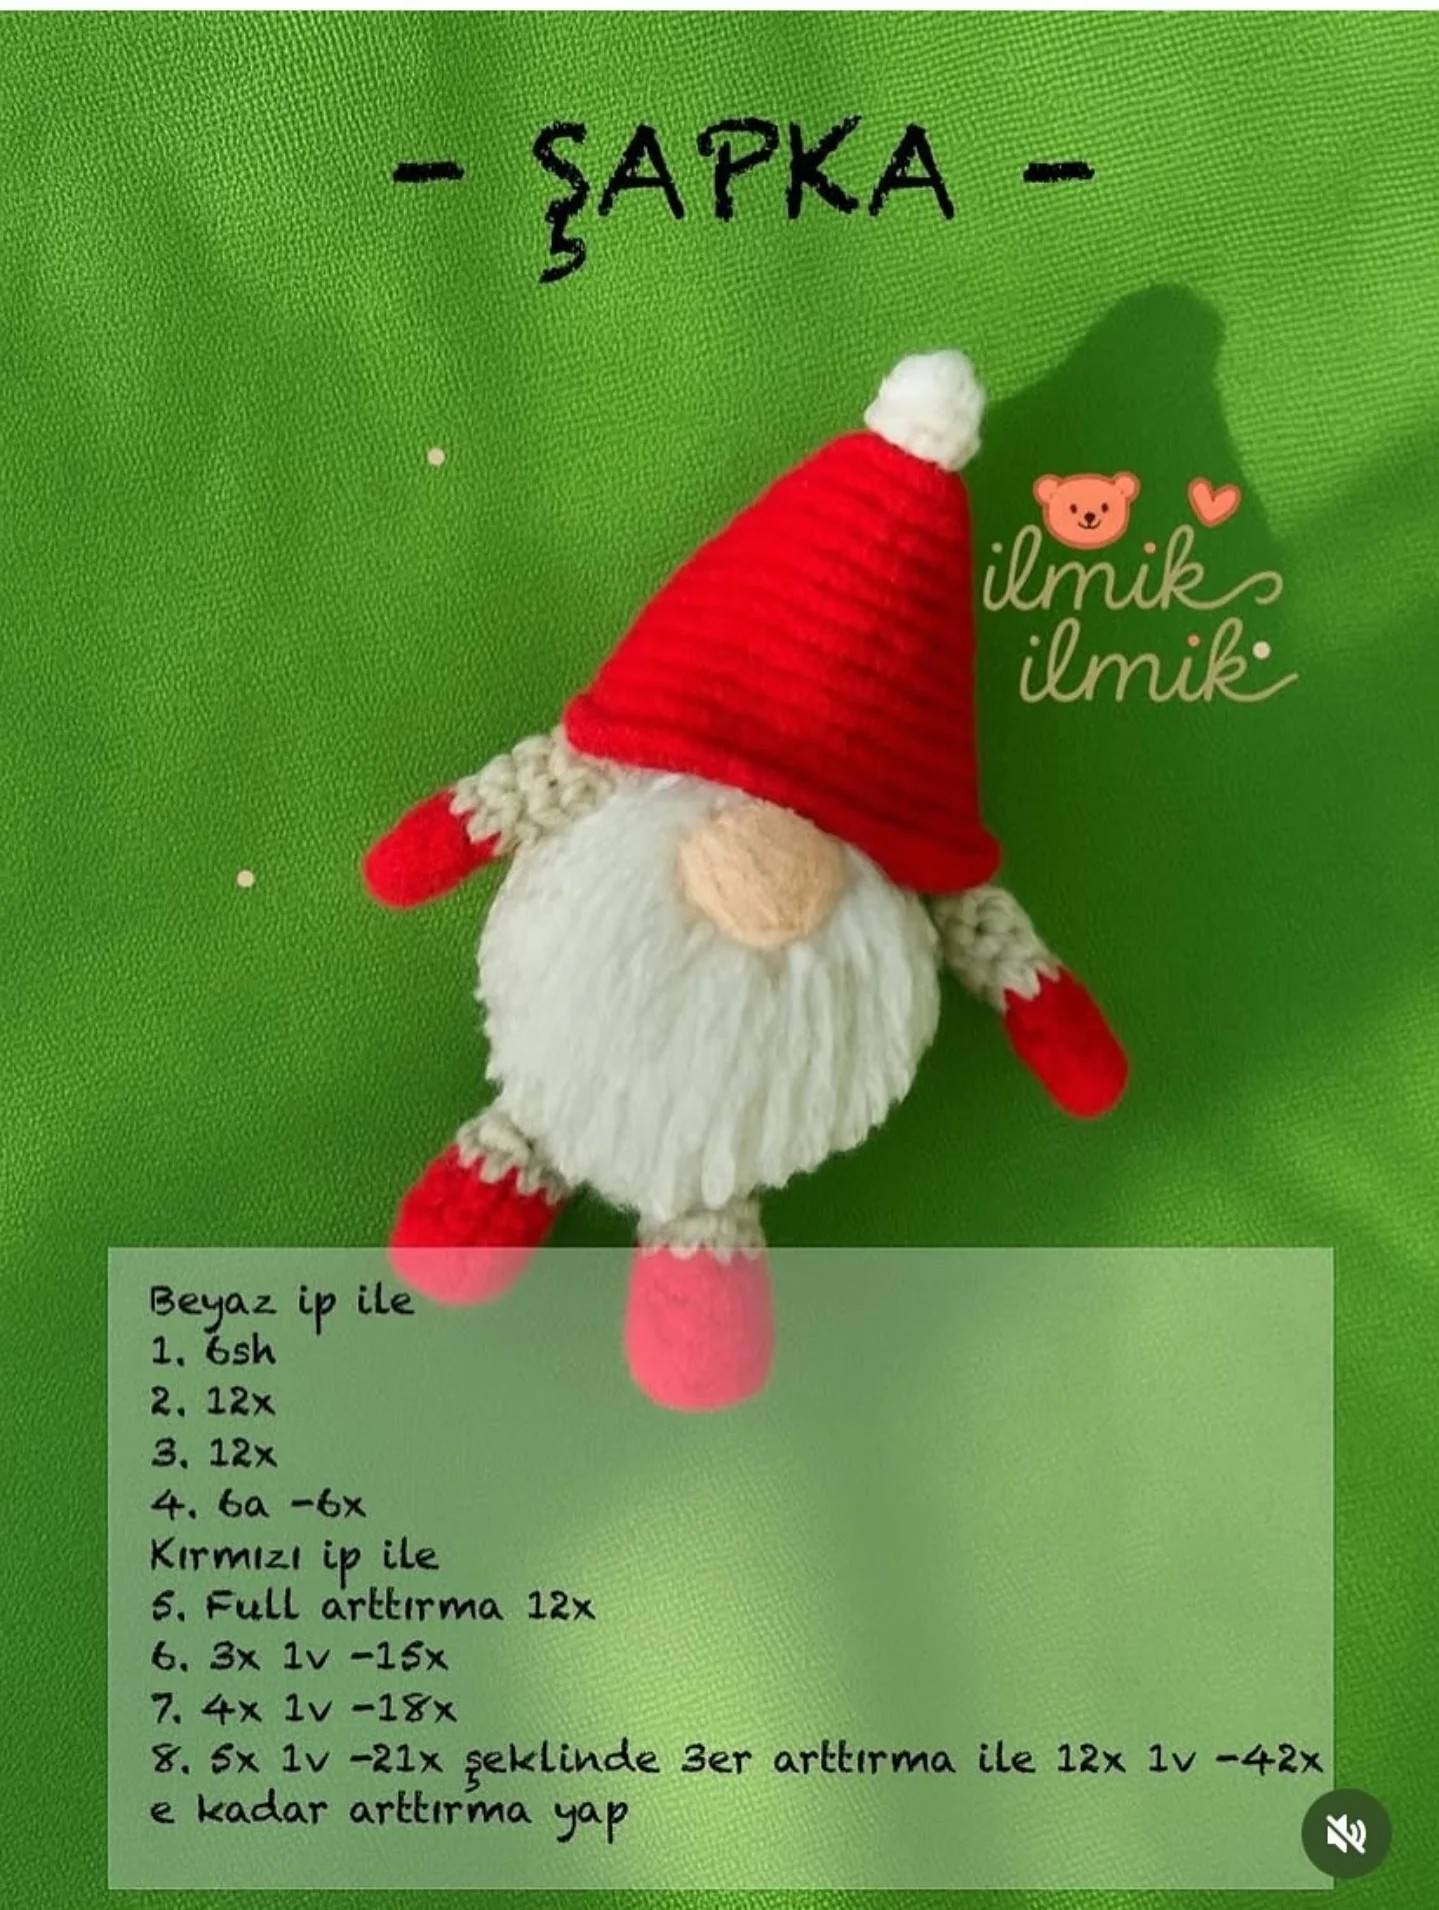 - ŞAPKA -
ilmik
ilmik
Beyaz ip ile
1. 6sh
2. 12x
3. 12x
4. 6a -6x
Kırmızı ip ile
5. Full arttırma 12x
6. 3x 1v -15x
7. 4x 1v -18x
8. 5x 1v -21x şeklinde 3er arttırma ile 12x 1v -42x
e kadar arttırma yap